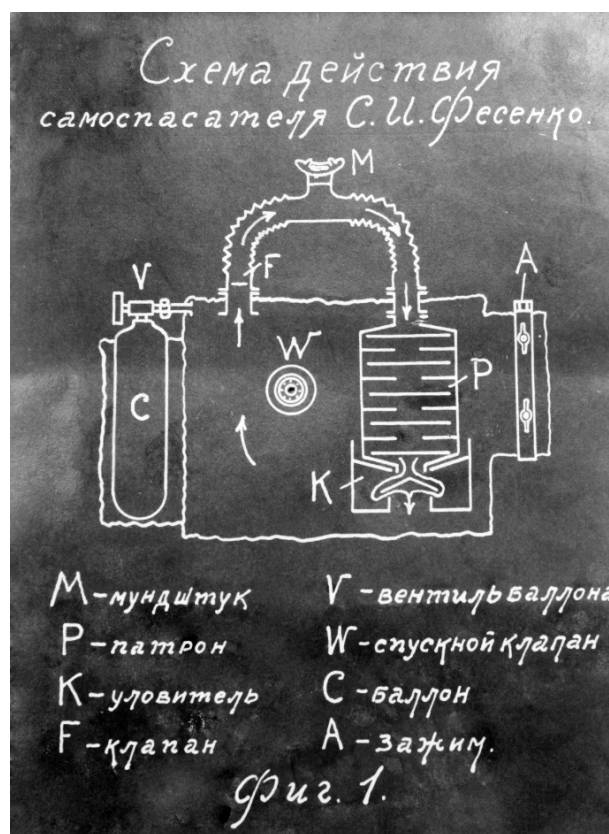 Схема действия
самоспасателя С.И.Фесенко.
M
F
V
A
W
C
P
K
M-мундштук
P-патрон
K-уловитель
F-клапан
V-вентиль баллона
W-спускной клапан
C-баллон
A-зажим.
Фиг. 1.